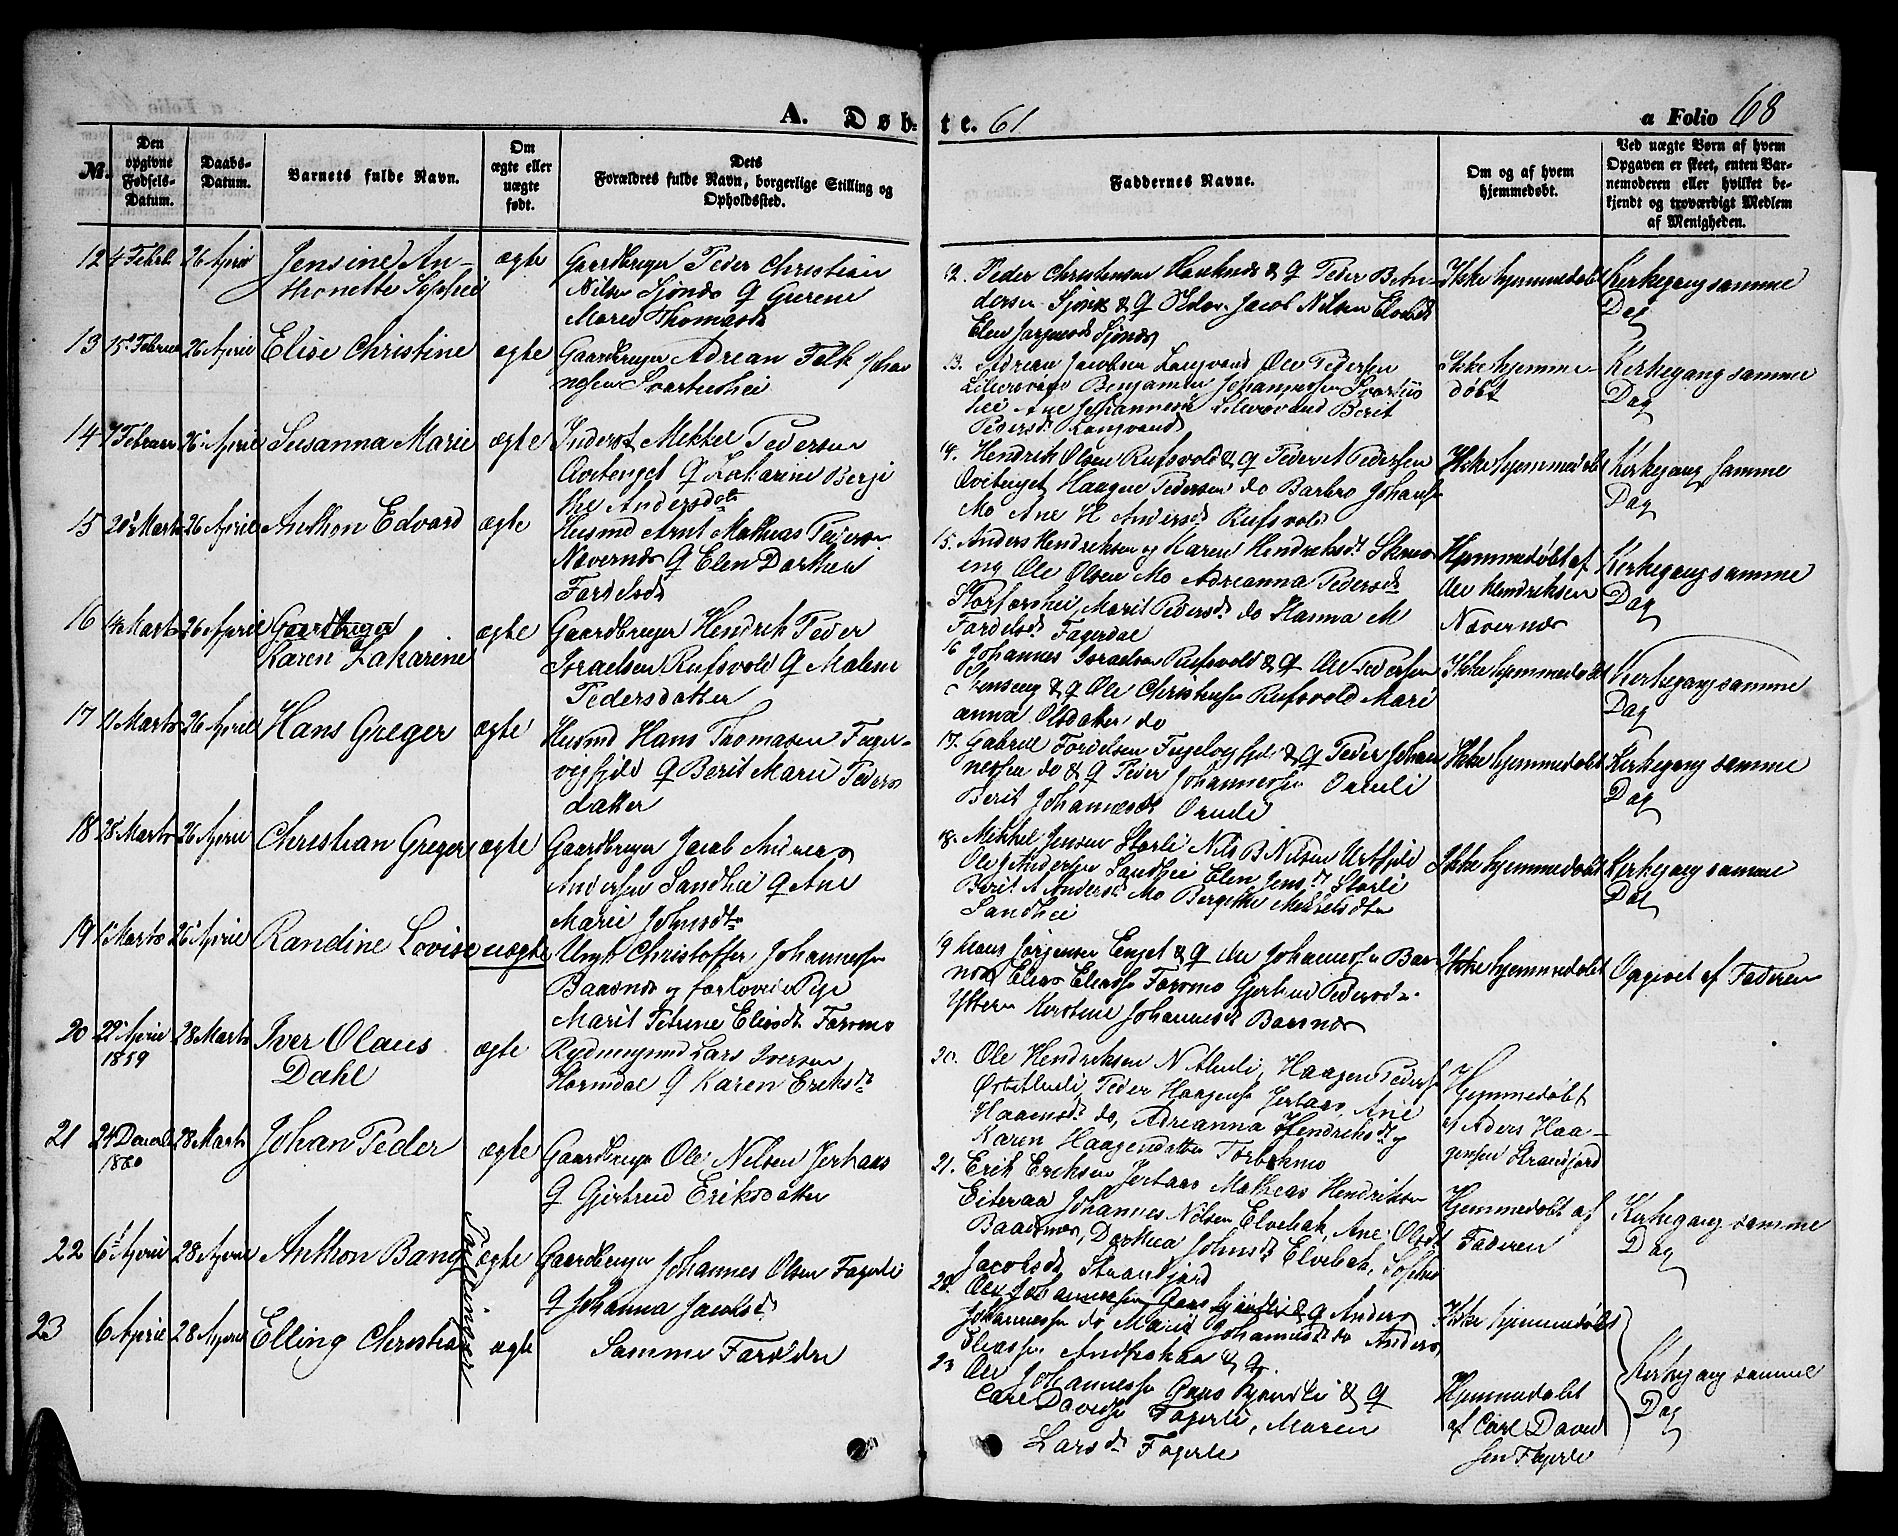 A. Døbte. 61
a Folio 68
No.
Den opgivne Fødsels-Datum.
Daabs-Datum.
Barnets fulde Navn.
Om ægte eller uægte født.
Dets Forældres fulde Navn, borgerlige Stilling og Opholdssted.
Faddernes Navne.
Om og af hvem hjemmedøbt.
Ved uægte Børn af hvem Opgaven er skeet, enten Barnemoderen eller hvilket bekjendt og troværdigt Medlem af Menigheden.
12 4 Febr 26 April Jensine An-
thonette Sophie
ægte
Gaardbruger Peder Christian
Nilsen Sjønes &
Maren Thomasd
12. Peder Christensen & Q Peder B An-
dersen Sjønes & Q Jacob Nilsen Elvebak
Elen Jørgensd Sjønes
Ikke hjemmedøbt
Kirkegang samme
Dag
13 15 Februar 26 April Elise Christine
ægte
Gaardbruger Adrean Falk Johan
nesen Svartishei
13. Adrian Jacobsen Langvand Ole Pedersen
Lillevand Benjamin Johannesen Svartis
hei Ane Johannesd Lillevand Berit
Pedersd Langvand
Ikke hjemme-
døbt
Kirkegang samme
Dag
14 7 Februar 26 April Susanna Marie
ægte
Inderst Mikkel Pedersen
Q Zakarine Bergi
the Andersdtr
14. Hendrik Olsen Rufsvold & Q Peder Pedersen
Haagen Pedersen do Barbro Johans
Mo Ane H Andersd Rufsvold
Ikke hjemmedøbt
Kirkegang samme
Dag
15 20 Marts 26 April Anthon Edvard
ægte
Husmd Arnt Mathias Pedersen
Nævernes Q Elen Dorthea
Fardelsd
15. Anders Hendriksen og Karen Hendriksdt
eng Ole Olsen Mo Adreanna Pedersd
Storforshei, Marit Pedersd do Hanna M
Fardelsd Fagerdal
Hjemmedøbt af
Ole Hendriksen
Nævernes
Kirkegang samme
Dag
16 14 Marts 26 April Gaardbruger
Karen Zakarine
ægte
Gaardbruger Hendrik Peder
Israelsen Rufsvold Q Malene
Pedersdatter
16 Johannes Israelsen Rufsvold & Q Ole Pedersen
& Q Ole Christensen Rufsvold Mari
anna Olsdatter do
Ikke hjemmedøbt
Kirkegang samme
Dag
17 11 Marts 26 April Hans Greger
ægte
Husmd Hans Thomasen Fugel-
vegfjeld Q Berit Marie Peders
datter
17. Gabriel Fordelsen Fugelvegfjel & Q Peder Johan
nessen do & Q Peder Johannessen
Berit Johannesdt
Ikke hjemmedøbt
Kirkegang samme
Dag
18 28 Marts 26 April Christian Greger
ægte
Gaardbruger Jacob Andreas
Andersen Sandhei Q Ane
Marie Johnsdtr
18. Mikkel Jensen Storli Nils B Nilsen Urtfjeld
Ole Andersen Sandhei Elen Jensdt Storli
Berit A Andersd Mo Bergithe Mikkelsdtr
Sandhei
Ikke hjemmedøbt
Kirkegang samme
Dag
19 1 Marts 26 April Randine Lovise
uægte
Ungk Christoffer Johannessen
Baasnes og forlovede Pige
Marit Petrine Eliasdt Forsmo
19 Claus Jørgensen Enget & Q Ole Johannessen Baas
nes Elias Eliassen Forsmo Gjertrud Pedersd
Ytteren Kirstine Johannesdt Baasnes
Ikke hjemmedøbt
Opgivet af Faderen
20 22 April
1859
28 Marts
Iver Olaus
Dahl
ægte
Rydningsmd Lars Iversen
Stormdal Q Karen Eriksdt
20. Ole Hendriksen N Aluli, Haagen Peders
Peder Haagens Jerbaas, Ane
Haagensd do, Adreanna Hendriksdt og
Karen Haagensdatter Forbekmo
Hjemmedøbt
af Anders Haa-
gensen Strandjord
21 24 Decembr
1860
28 Marts Johan Peder
ægte
Gaardbruger Ole Nilsen Jerbaas
Q Gjertrud Eriksdatter
21. Erik Eriksen Jerbaas Mathias Hendriksen
Eiteraa Johannes Nilsen Elvebak, Ane Olsdt
Baasnes, Dorthea Johnsdt Elvebak, Sophie
Jacobsdt Strandjord
Hjemmedøbt af
Faderen
Kirkegang samme
Dag
22 6 April 28 April Anthon Bang
Tvillinger
ægte
Gaardbruger Johannes Olsen Fagerli
Q Johanna Jacobsd
22. Ole Johannessen & Q Anders
Johannessen do Maria Johannesdt do Anders
Eliassen & Q
Ikke hjemmedøbt
23 6 April 28 April Elling Christian
ægte
Samme Forældre
23 Ole Johannessen & Q
Carl Davidsen Fagerli, Maren
Larsdt Fagerli
Hjemmedøbt
af Carl David
sen Fagerli
Kirkegang samme
Dag